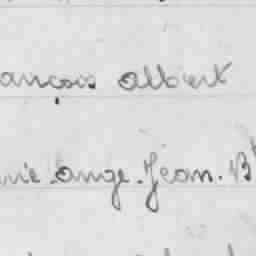 ançois albert
rie ange. Jean. Bt